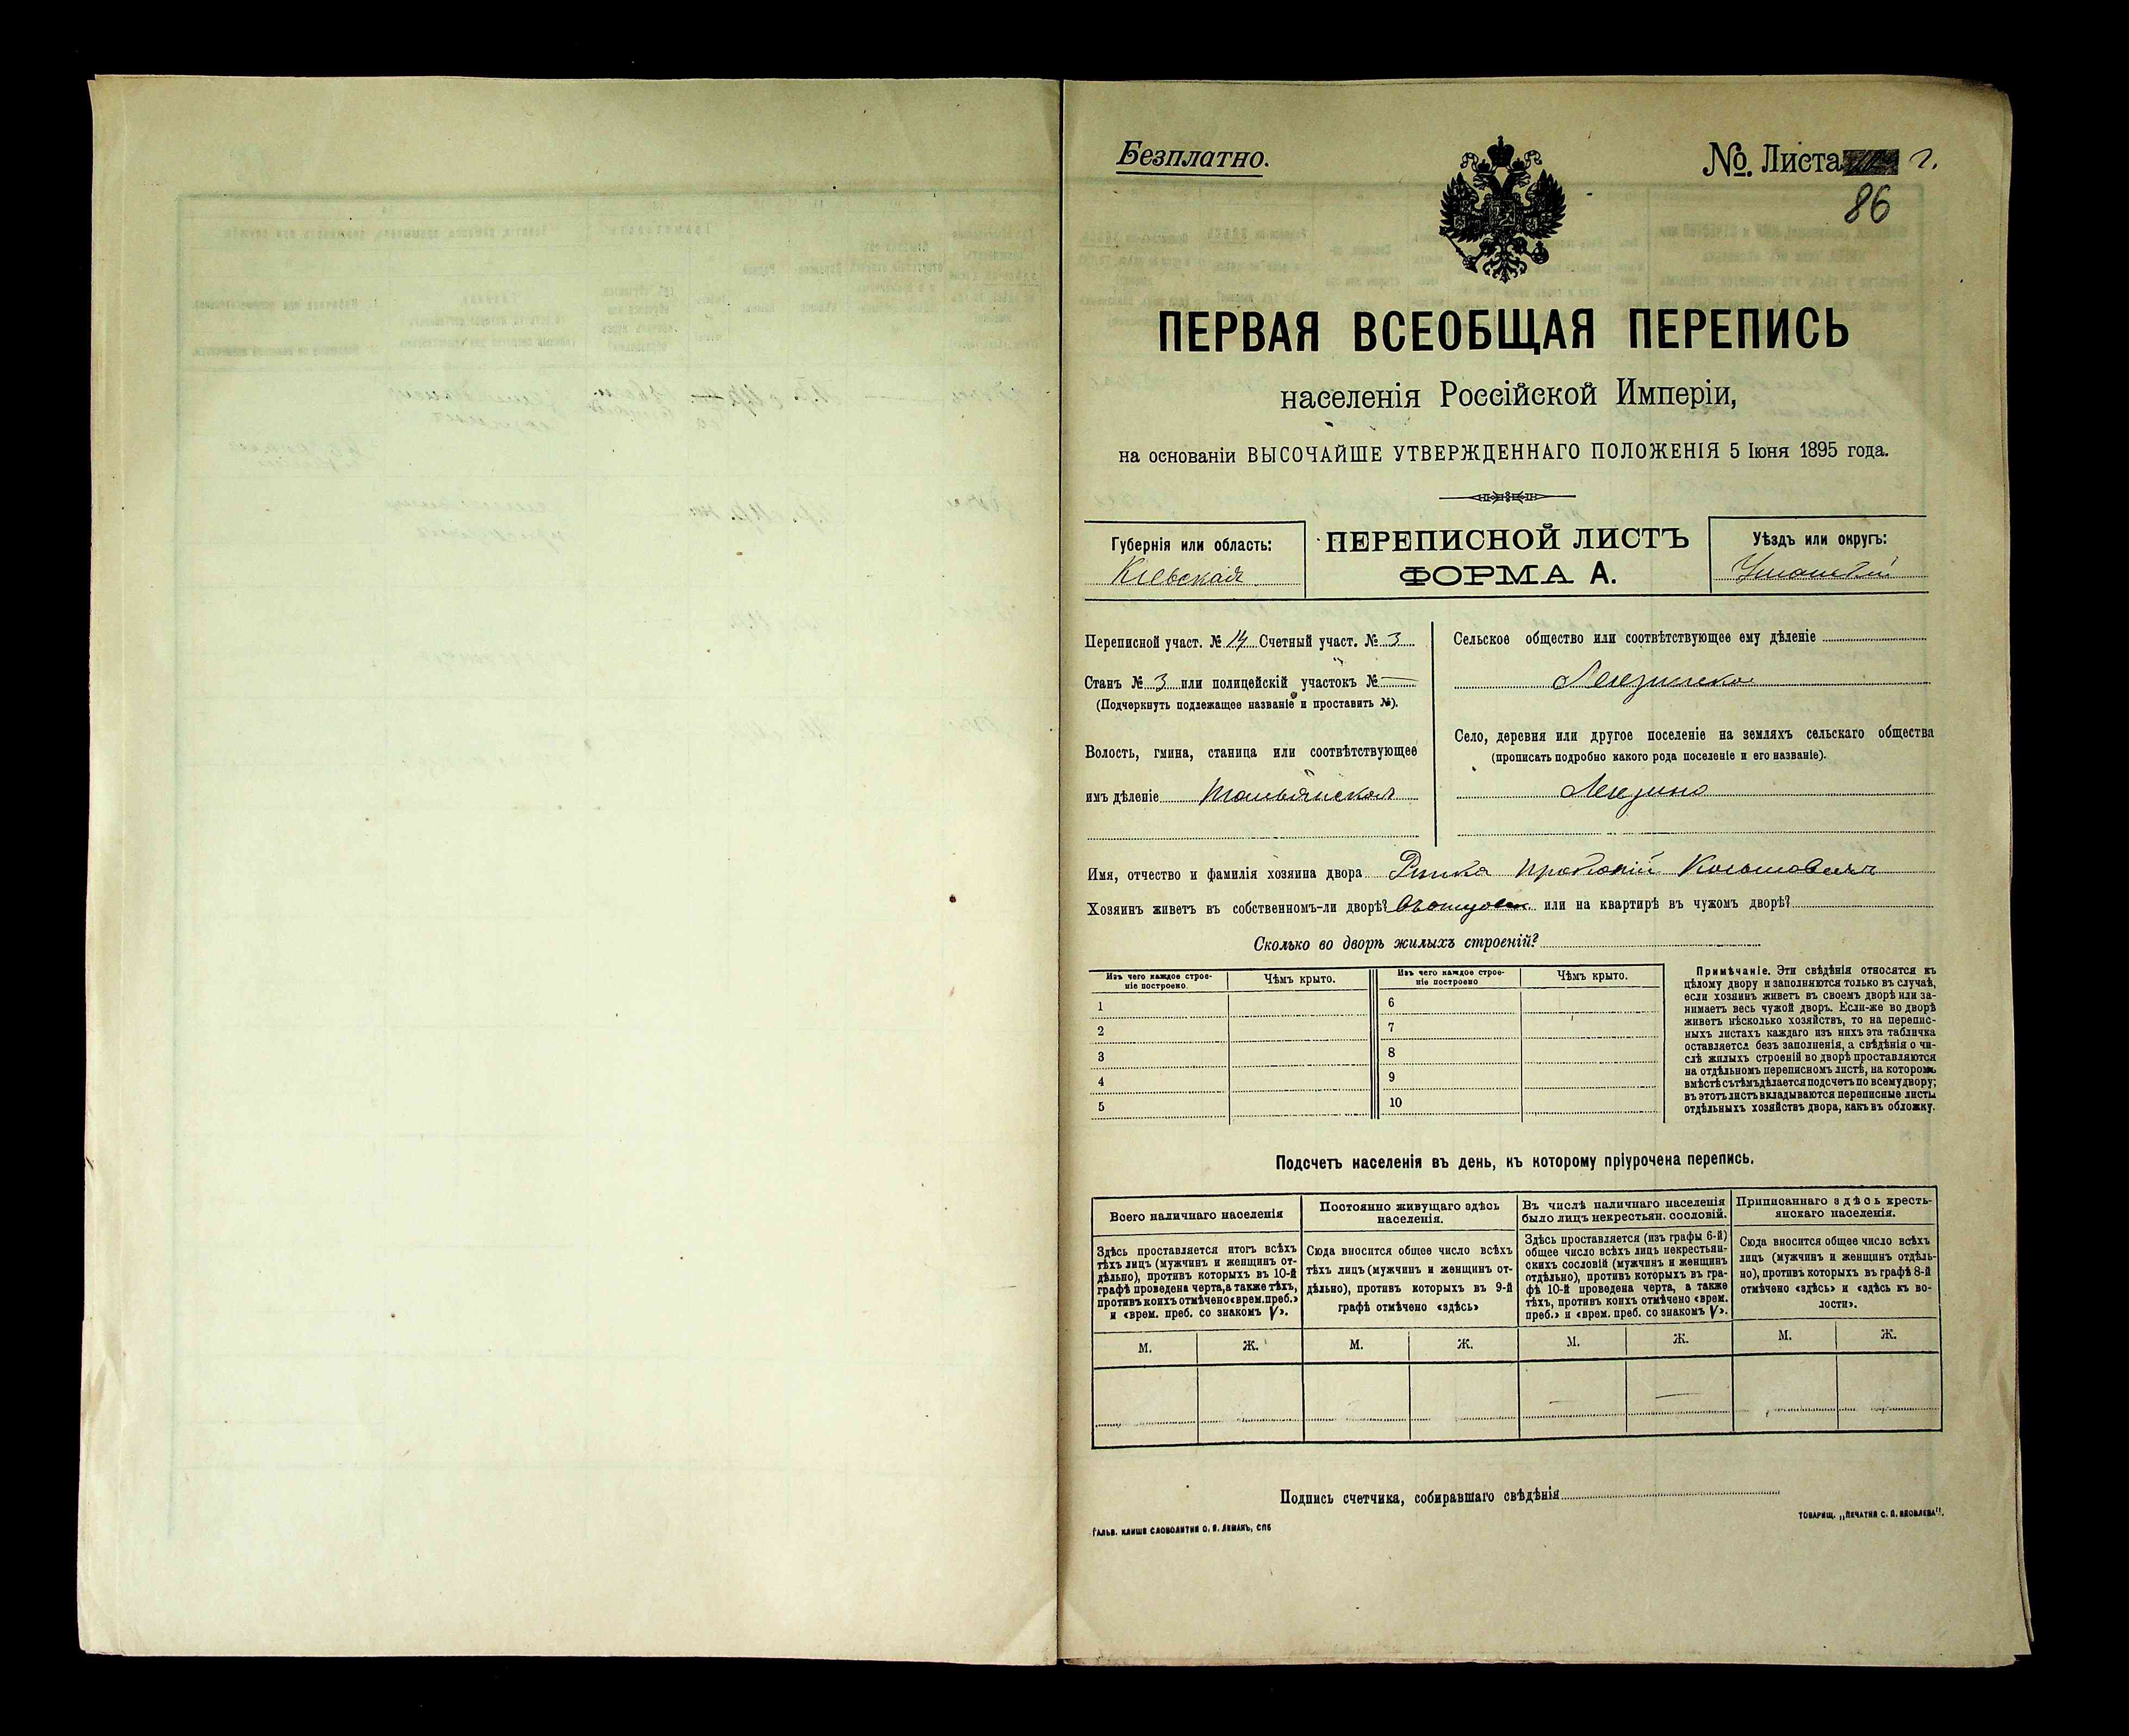 Безплатно.
№ Листа г.
86
ПЕРВАЯ ВСЕОБЩАЯ ПЕРЕПИСЬ
населенія Россійской Имперіи,
на основаніи ВЫСОЧАЙШЕ УТВЕРЖДЕННАГО ПОЛОЖЕНІЯ 5 Іюня 1895 года.
Губернія или область:
Кіевская
ПЕРЕПИСНОЙ ЛИСТЪ
ФОРМА А.
Уѣздъ или округъ:
Уманскій
Переписной участ. № 14 Счетный участ. № 3
Станъ № 3 или полицейскій участокъ № —
(Подчеркнуть подлежащее названіе и проставить №).
Волость, гмина, станица или соотвѣтствующее
имъ дѣленіе Тальянская
Сельское общество или соотвѣтствующее ему дѣленіе
Легезинское
Село, деревня или другое поселеніе на земляхъ сельскаго общества
(прописать подробно какого рода поселеніе и его названіе).
Легезино
Имя, отчество и фамилія хозяина двора Прокопій
Хозяинъ живетъ въ собственномъ-ли дворѣ? или на квартирѣ въ чужомъ дворѣ?
Сколько во дворѣ жилыхъ строеній?
Изъ чего каждое строе-
ніе построено.
Чѣмъ крыто.
Изъ чего каждое строе-
ніе построено
Чѣмъ крыто.
1
2
3
4
5
6
7
8
9
10
Примѣчаніе. Эти свѣдѣнія относятся къ
цѣлому двору и заполняются только въ случаѣ,
если хозяинъ живетъ въ своемъ дворѣ или за-
нимаетъ весь чужой дворъ. Если-же во дворѣ
живетъ нѣсколько хозяйствъ, то на перепис-
ныхъ листахъ каждаго изъ нихъ эта табличка
оставляется безъ заполненія, а свѣдѣнія о чи-
слѣ жилыхъ строеній во дворѣ проставляются
на отдѣльномъ переписномъ листѣ, на которомъ
вмѣстѣ съ тѣмъ дѣлается подсчетъ по всему двору;
въ этотъ листъ вкладываются переписные листы
отдѣльныхъ хозяйствъ двора, какъ въ обложку.
Подсчетъ населенія въ день, къ которому пріурочена перепись.
Всего наличнаго населенія
Здѣсь проставляется итогъ всѣхъ
тѣхъ лицъ (мужчинъ и женщинъ от-
дѣльно), противъ которыхъ въ 10-й
графѣ проведена черта, а также тѣхъ,
противъ коихъ отмѣчено «врем. преб.»
и «врем. преб. со знакомъ V».
Постоянно живущаго здѣсь
населенія.
Сюда вносится общее число всѣхъ
тѣхъ лицъ (мужчинъ и женщинъ от-
дѣльно), противъ которыхъ въ 9-й
графѣ отмѣчено «здѣсь»
Въ числѣ наличнаго населенія
было лицъ некрестьян. сословій.
Здѣсь проставляется (изъ графы 6-й)
общее число всѣхъ лицъ некрестьян-
скихъ сословій (мужчинъ и женщинъ
отдѣльно), противъ которыхъ въ гра-
фѣ 10-й проведена черта, а также
тѣхъ, противъ коихъ отмѣчено «врем.
преб.» и «врем. преб. со знакомъ V».
Приписаннаго здѣсь кресть-
янскаго населенія.
Сюда вносится общее число всѣхъ
лицъ (мужчинъ и женщинъ отдѣль-
но), противъ которыхъ въ графѣ 8-й
отмѣчено «здѣсь» и «здѣсь къ во-
лости».
М. Ж. М. Ж. М. Ж. М. Ж.
— —
Подпись счетчика, собиравшаго свѣдѣнія
Гальв. клише словолитни О. И. Леманъ, СПБ
ТОВАРИЩ. „ПЕЧАТНЯ С. П. ЯКОВЛЕВА".